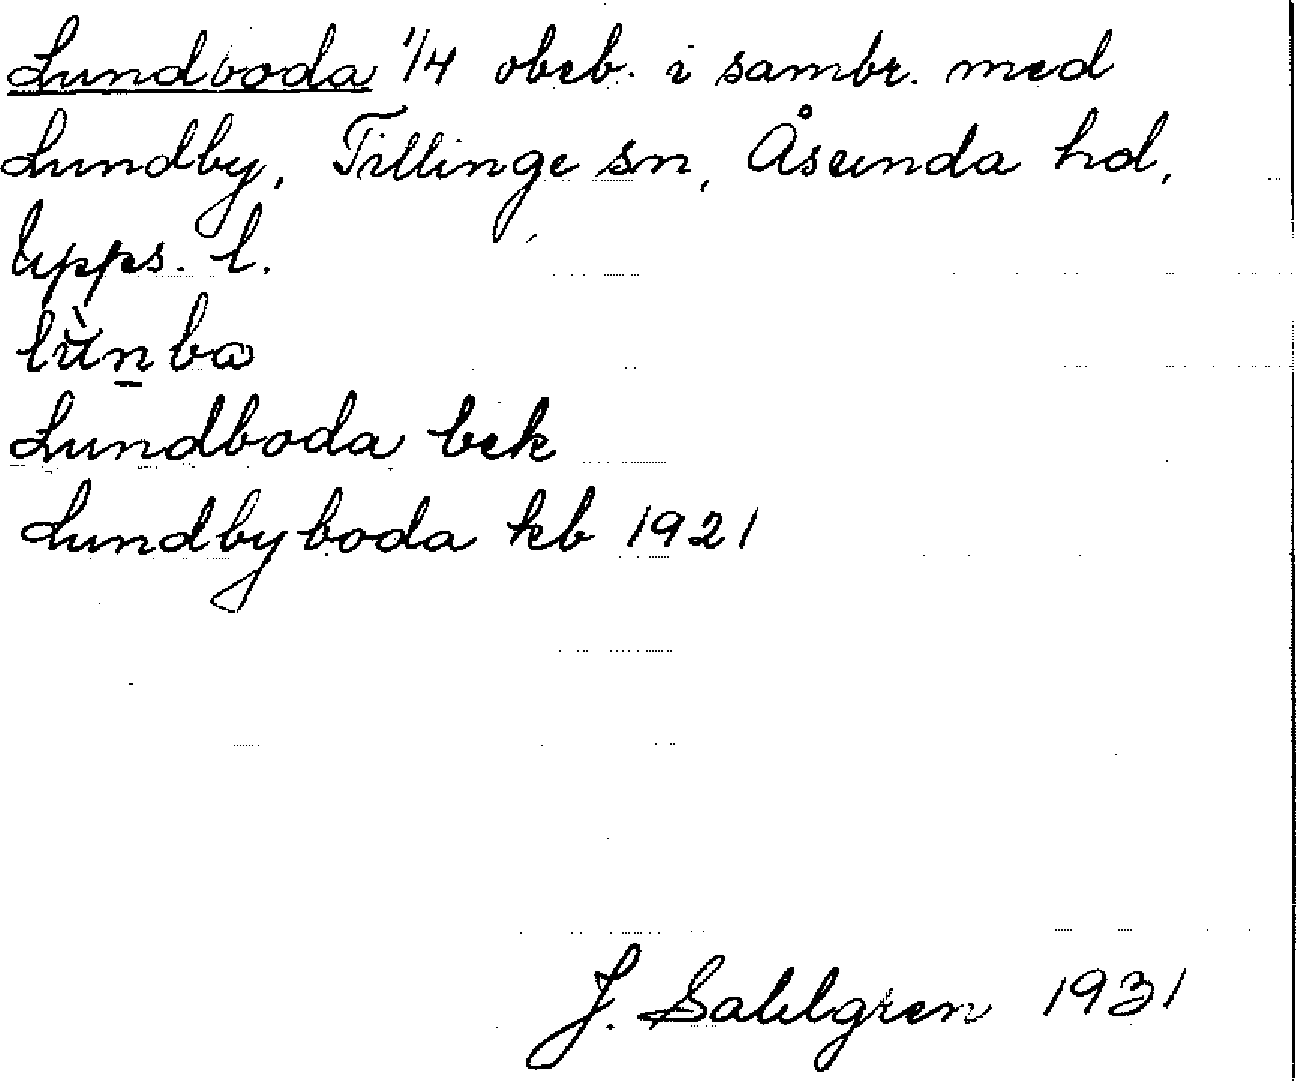 Lundboda 1/4 obeb. i sambr. med
Lundby, Tillinge sn, Åsunda hd,
Upps. l.
lùn̲ba
Lundboda bek
Lundbyboda kb 1921
J. Sahlgren 1931